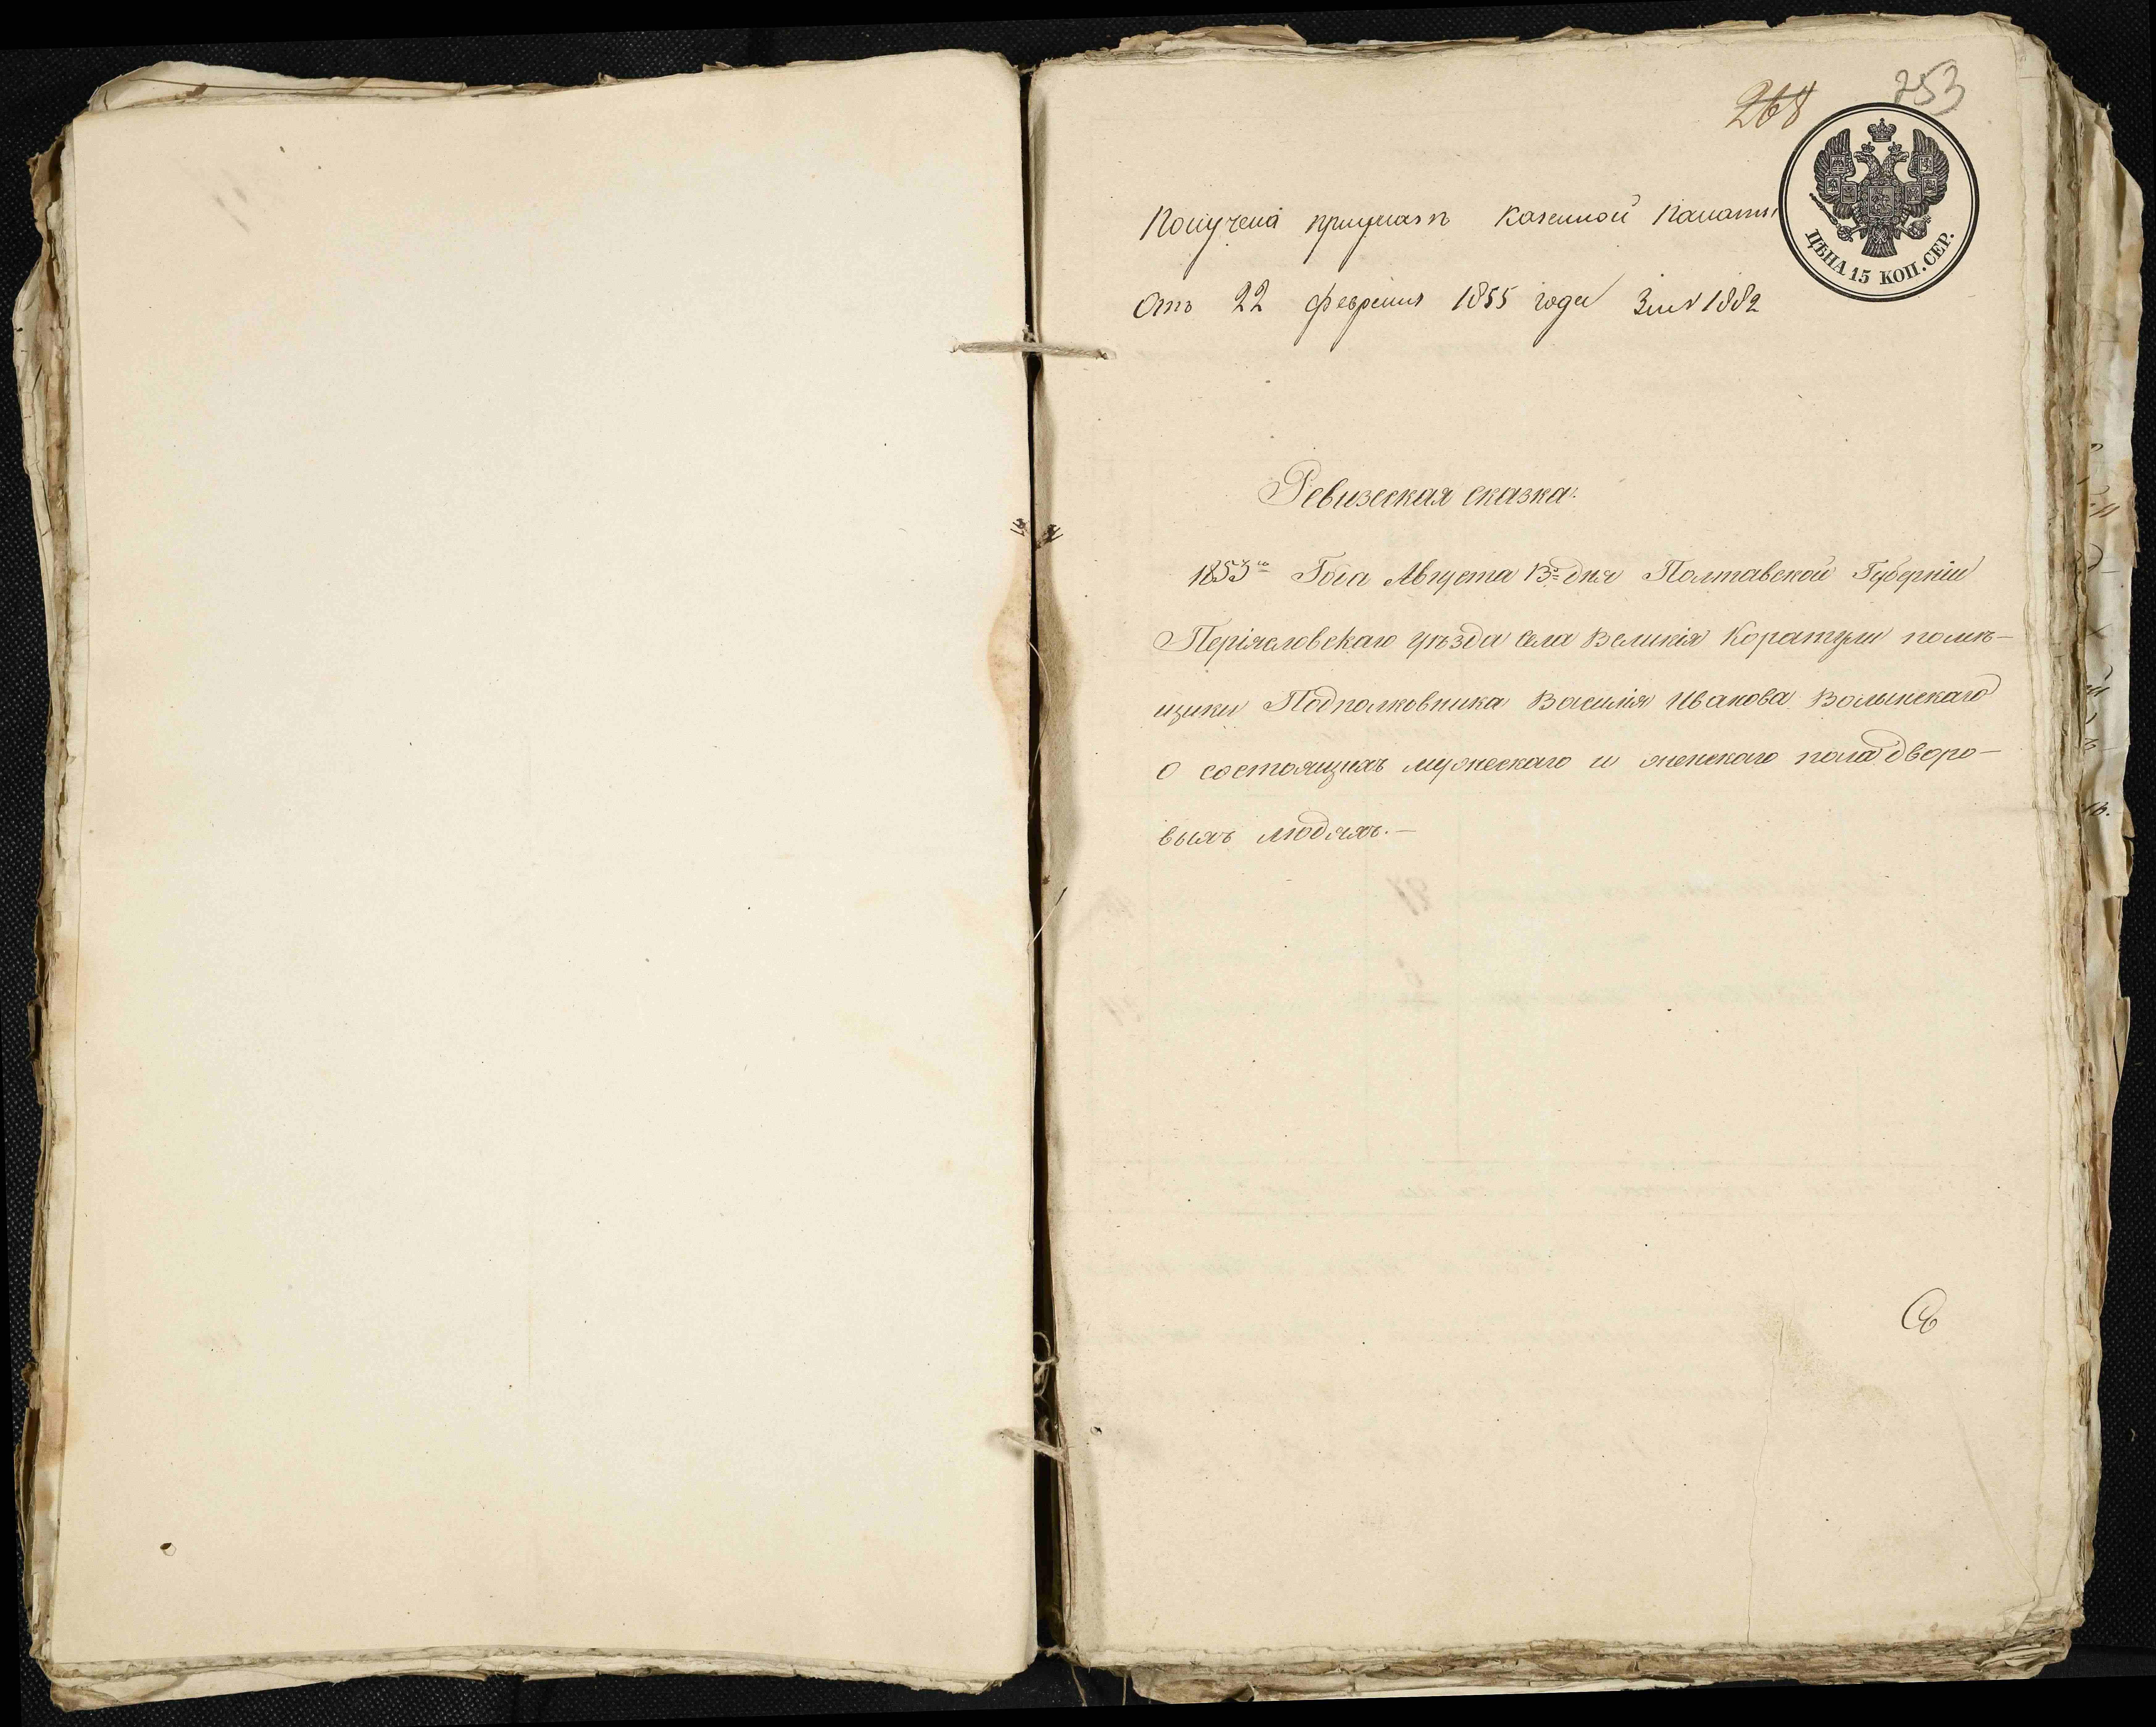 268
253
ЦѢНА 15 КОП. СЕР.
Получена приуказѣ Казенной Палаты
Отъ 22 февраля 1855 года За № 1882
Ревизская сказка.
1853го Года Августа 13го дня Полтавской Губерніи
Періясловскаго уѣзда села Великія Коратули помѣ-
щики Подполковника Василія Иванова Волынскаго
о состоящихъ мужескаго и женскаго пола дворо-
выхъ людяхъ.—